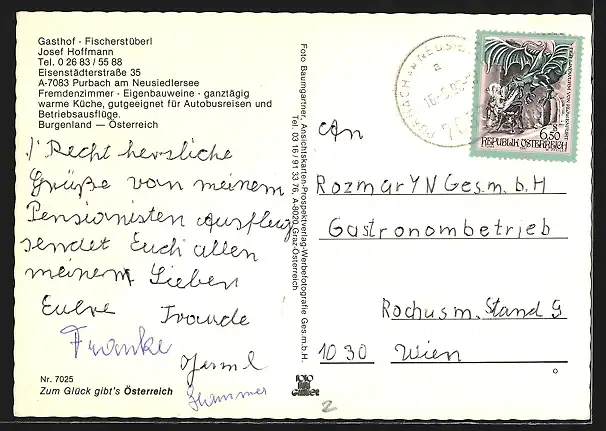 Gasthof · Fischerstüberl
Josef Hoffmann
Tel. 0 26 83 / 55 88
Eisenstädterstraße 35
A-7083 Purbach am Neusiedlersee
Fremdenzimmer · Eigenbauweine · ganztägig
warme Küche, gutgeeignet für Autobusreisen und
Betriebsausflüge.
Burgenland — Österreich
Recht herzliche
Grüße von meinem
Pensionisten Ausflug
sendet Euch allen
meinem Lieben
Eure Traude
Franke
Hammer
Nr. 7025
Zum Glück gibt's Österreich
Foto Baumgartner, Ansichtskarten-Prospektverlag-Werbefotografie Ges.m.b.H.
Tel. 03 16 / 91 33 76, A-8020 Graz-Österreich
6.50
REPUBLIK ÖSTERREICH
An
RozmarYN Ges. m. b H
Gastronombetrieb
Rochusm. Stand 9
1030 Wien
2